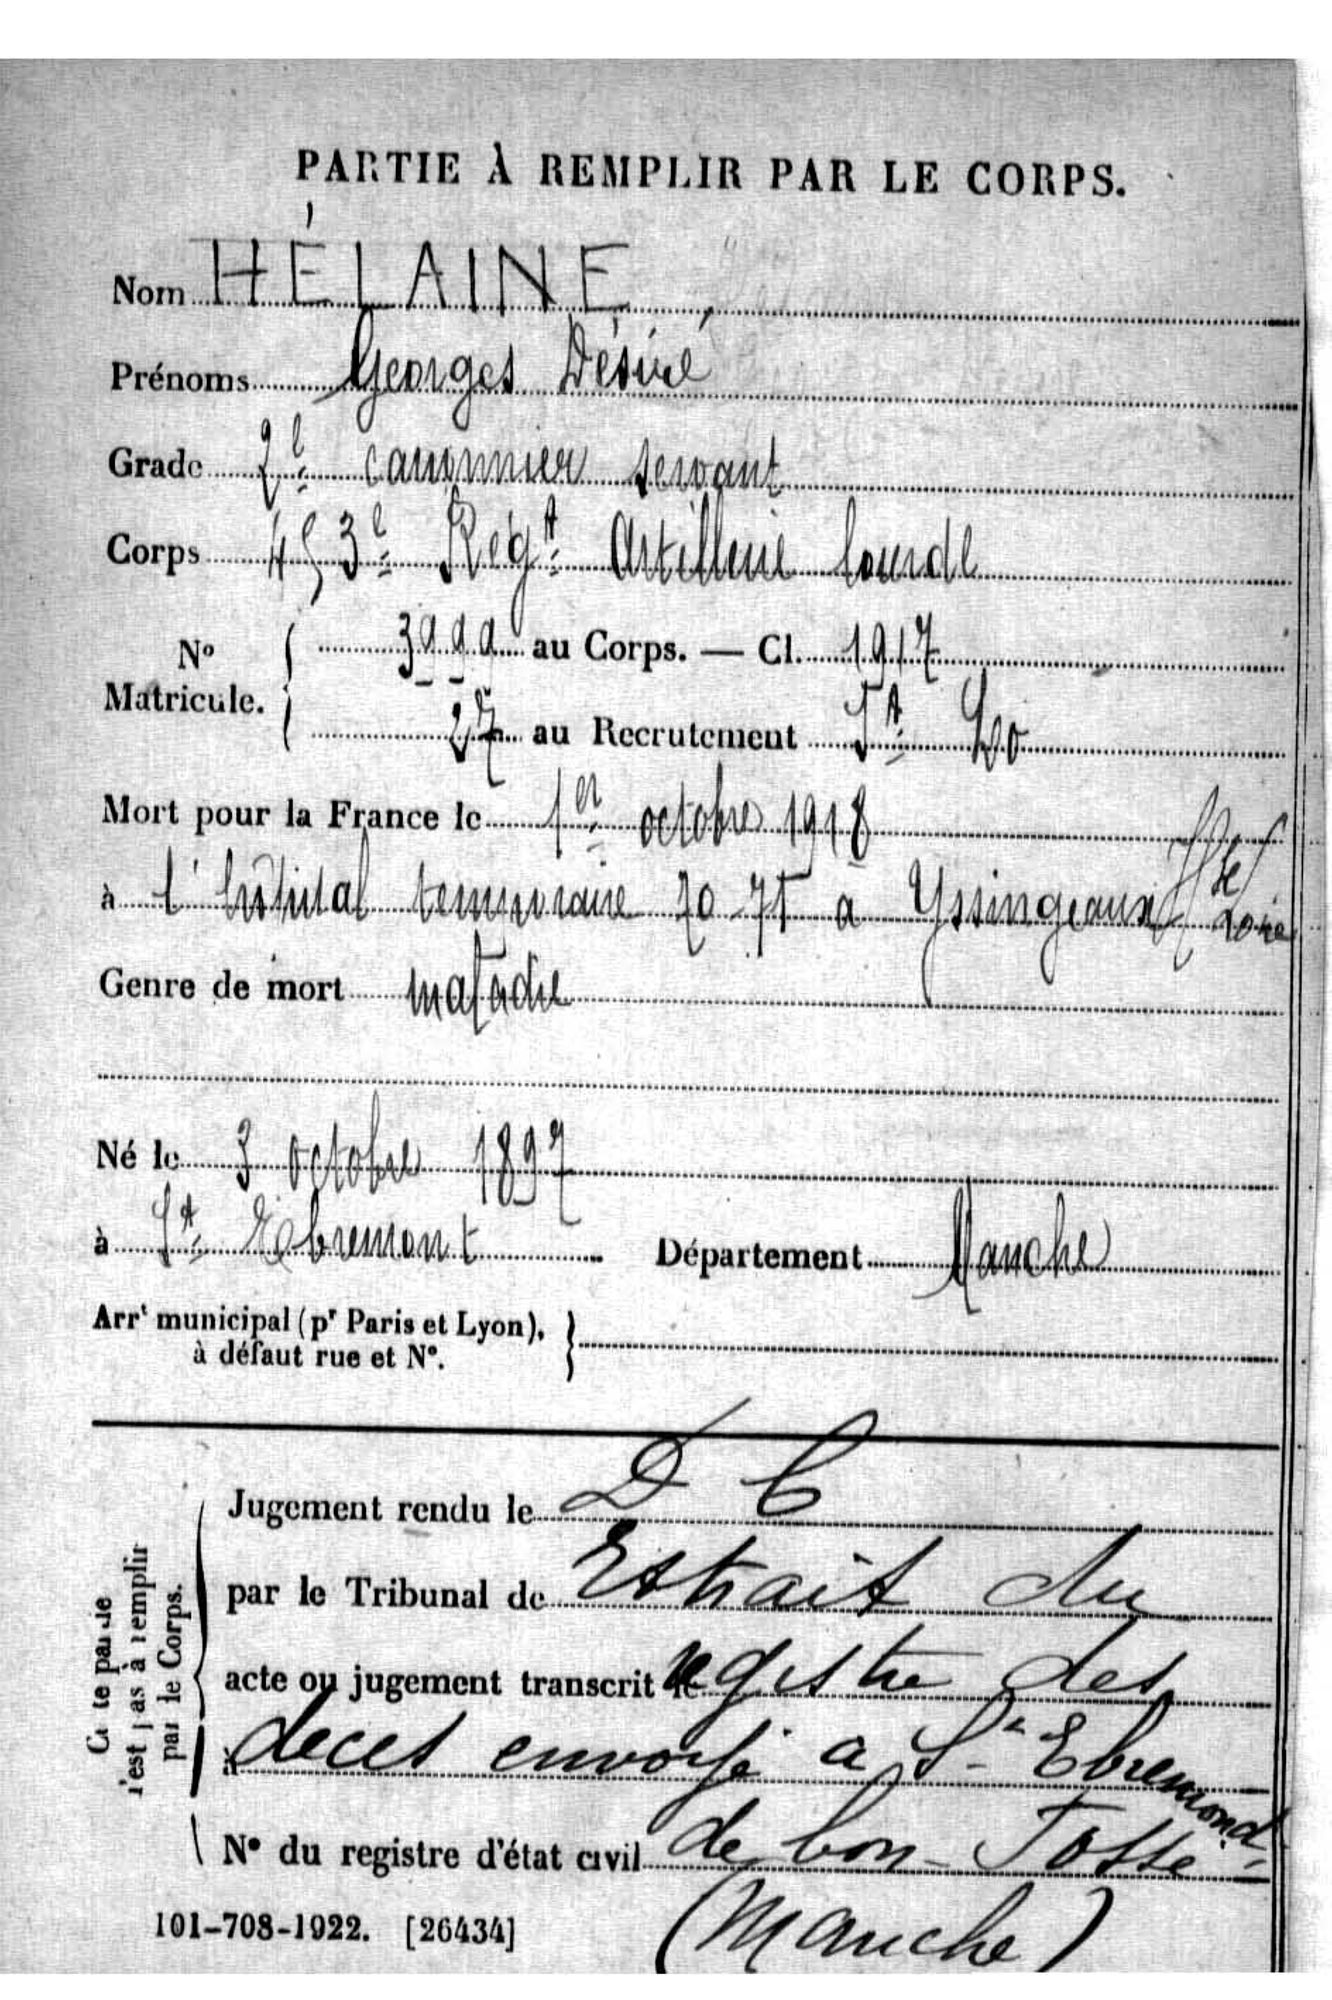 PARTIE À REMPLIR PAR LE CORPS.
Nom HÉLAINE
Prénoms Georges Désiré
Grade 2e canonnier servant
Corps 453e Régt Artillerie lourde
N° Matricule.
3999 au Corps. — Cl. 1917
27 au Recrutement St Lo
Mort pour la France le 1er octobre 1918
à l'hôpital temporaire 70-75 à Yssingeaux Hte Loire
Genre de mort maladie
Né le 3 octobre 1897
à St Ebremont Département Manche
Arrt municipal (pr Paris et Lyon),
à défaut rue et N°.
Cette partie
n'est pas à remplir
par le Corps.
Jugement rendu le D C
par le Tribunal de Extrait du
acte ou jugement transcrit le registre des
à decès envoyé a St Ebremond
N° du registre d'état civil de bon-Fosse
(Manche)
101-708-1922. [26434]